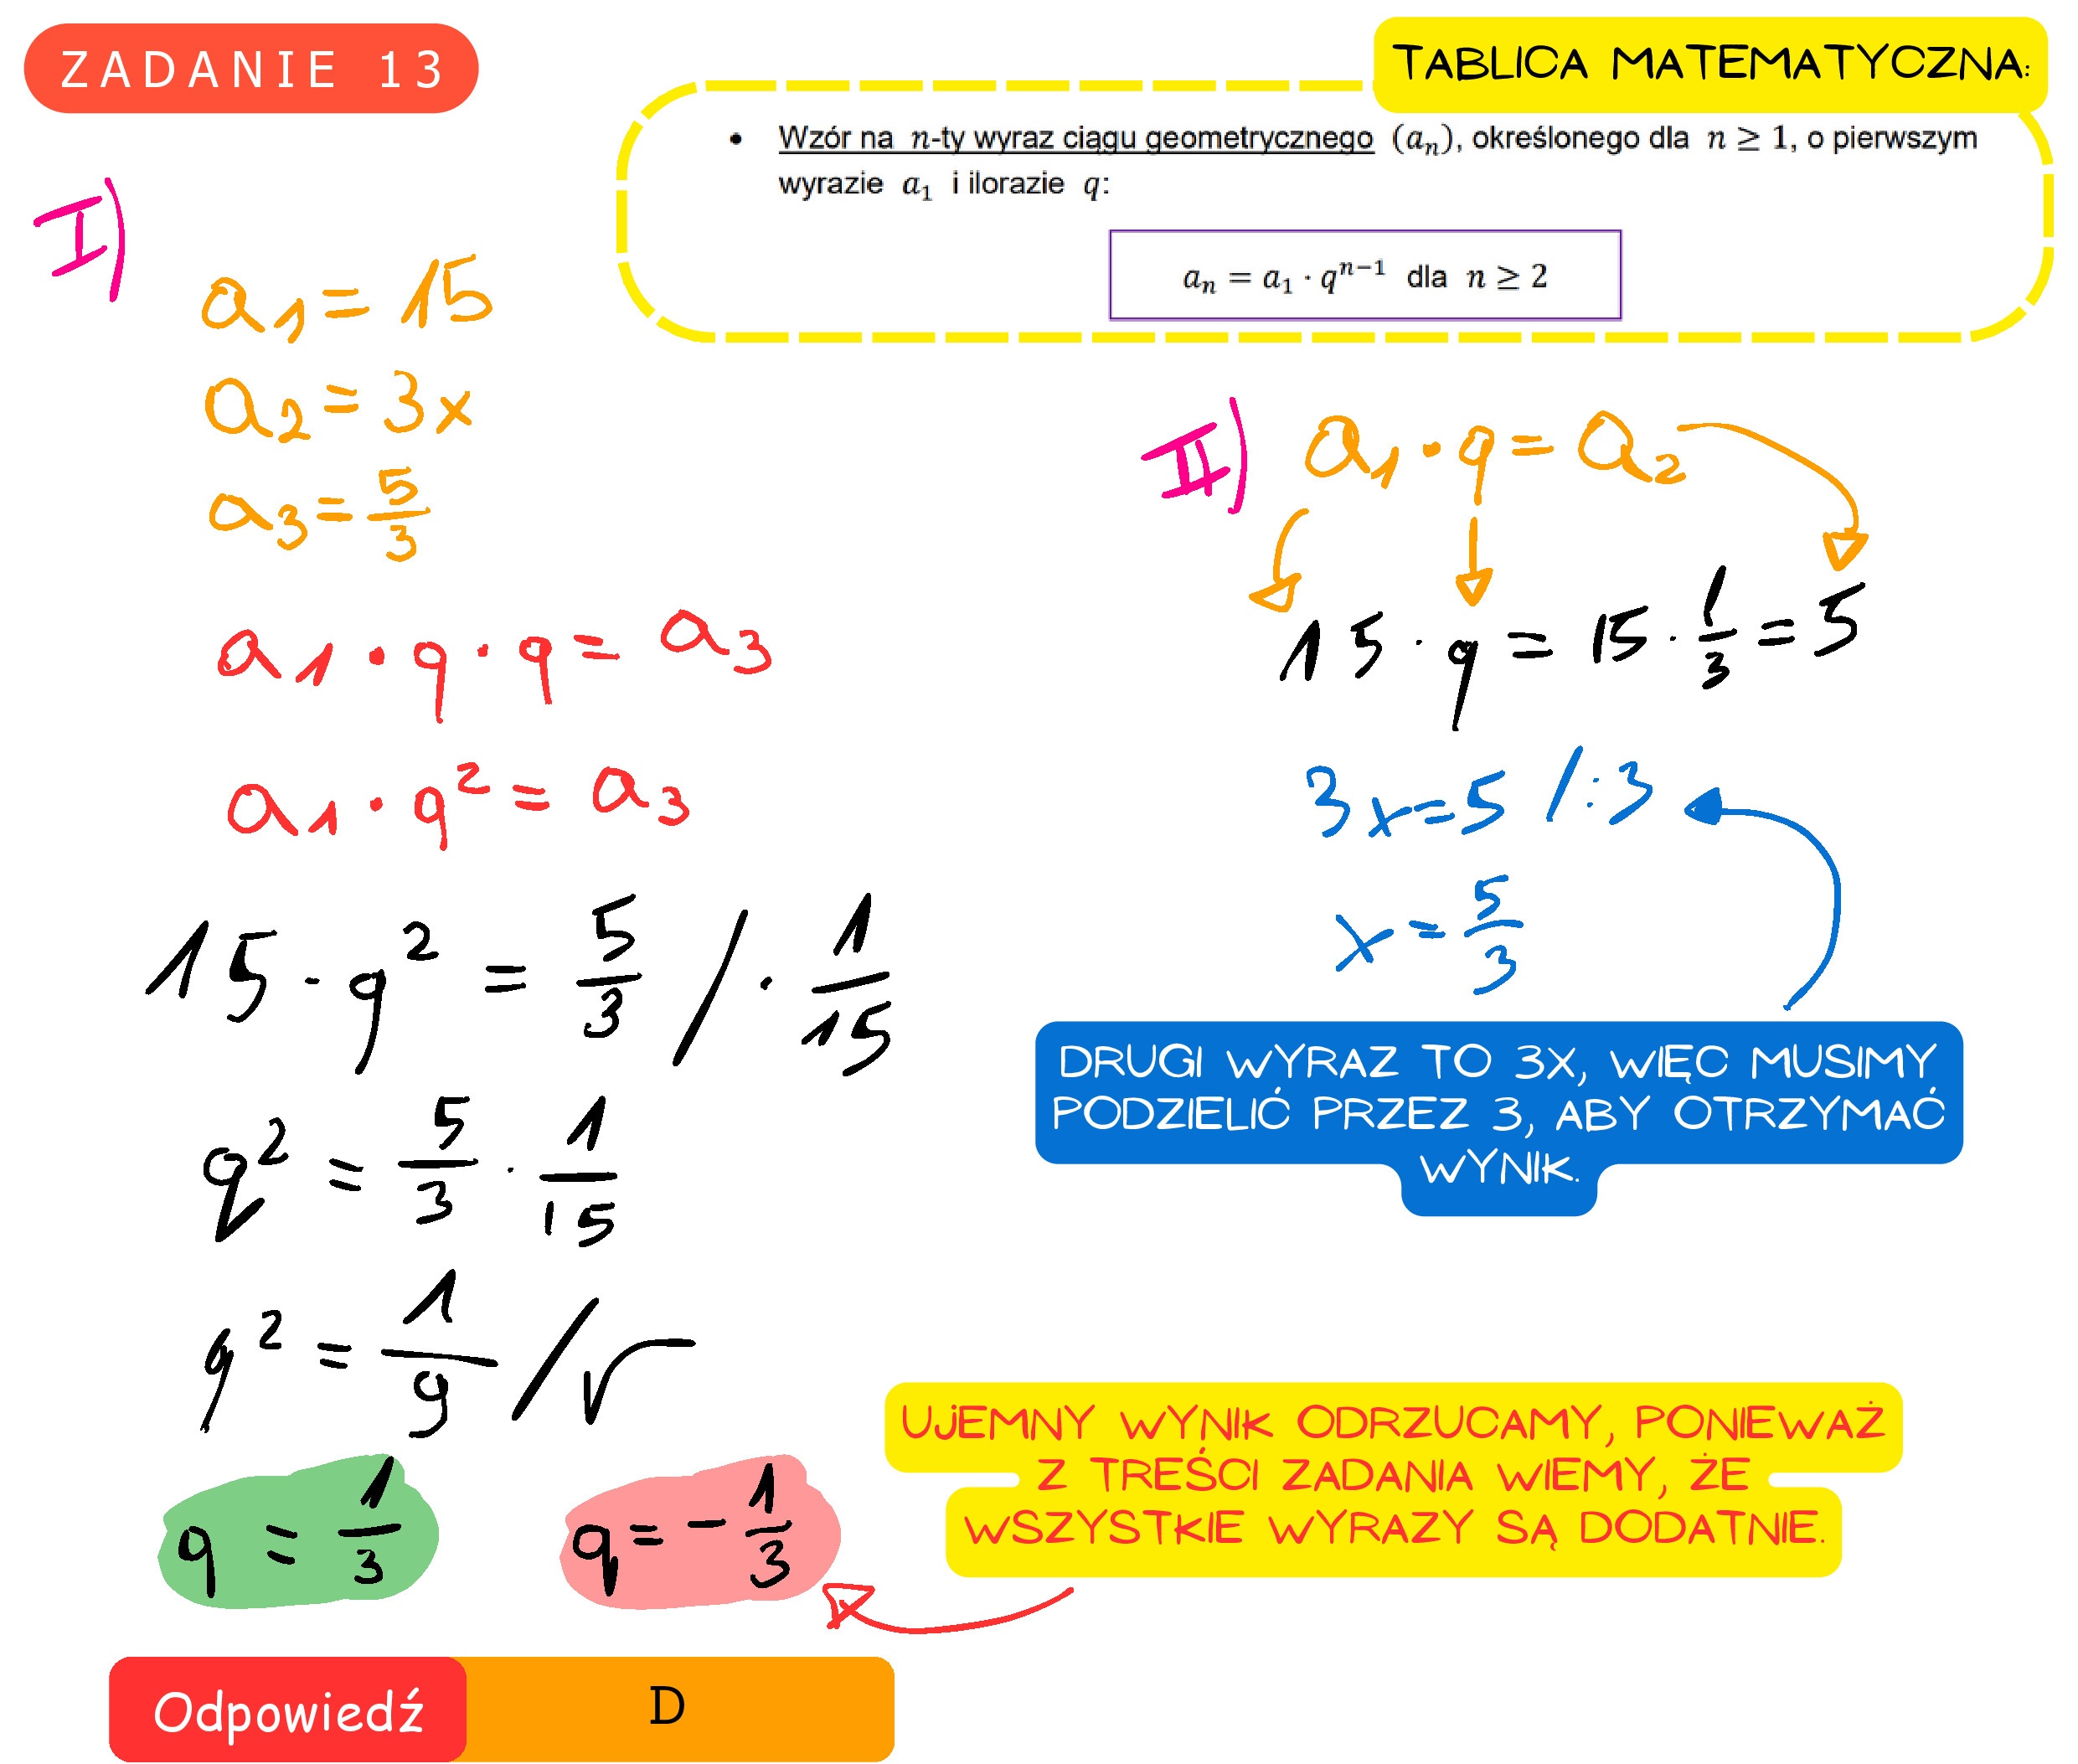 ZADANIE 13
TABLICA MATEMATYCZNA:
• Wzór na n-ty wyraz ciągu geometrycznego (aₙ), określonego dla n ≥ 1, o pierwszym
wyrazie a₁ i ilorazie q:
aₙ = a₁ · qⁿ⁻¹ dla n ≥ 2
I)
a₁ = 15
a₂ = 3x
a₃ = 5/3
a₁ · q · q = a₃
a₁ · q² = a₃
15 · q² = 5/3 / · 1/15
q² = 5/3 · 1/15
q² = 1/9 / √
q = 1/3
q = - 1/3
II) a₁ · q = a₂
15 · q = 15 · 1/3 = 5
3x = 5 / : 3
x = 5/3
DRUGI WYRAZ TO 3X, WIĘC MUSIMY
PODZIELIĆ PRZEZ 3, ABY OTRZYMAĆ
WYNIK.
UJEMNY WYNIK ODRZUCAMY, PONIEWAŻ
Z TREŚCI ZADANIA WIEMY, ŻE
WSZYSTKIE WYRAZY SĄ DODATNIE.
Odpowiedź D